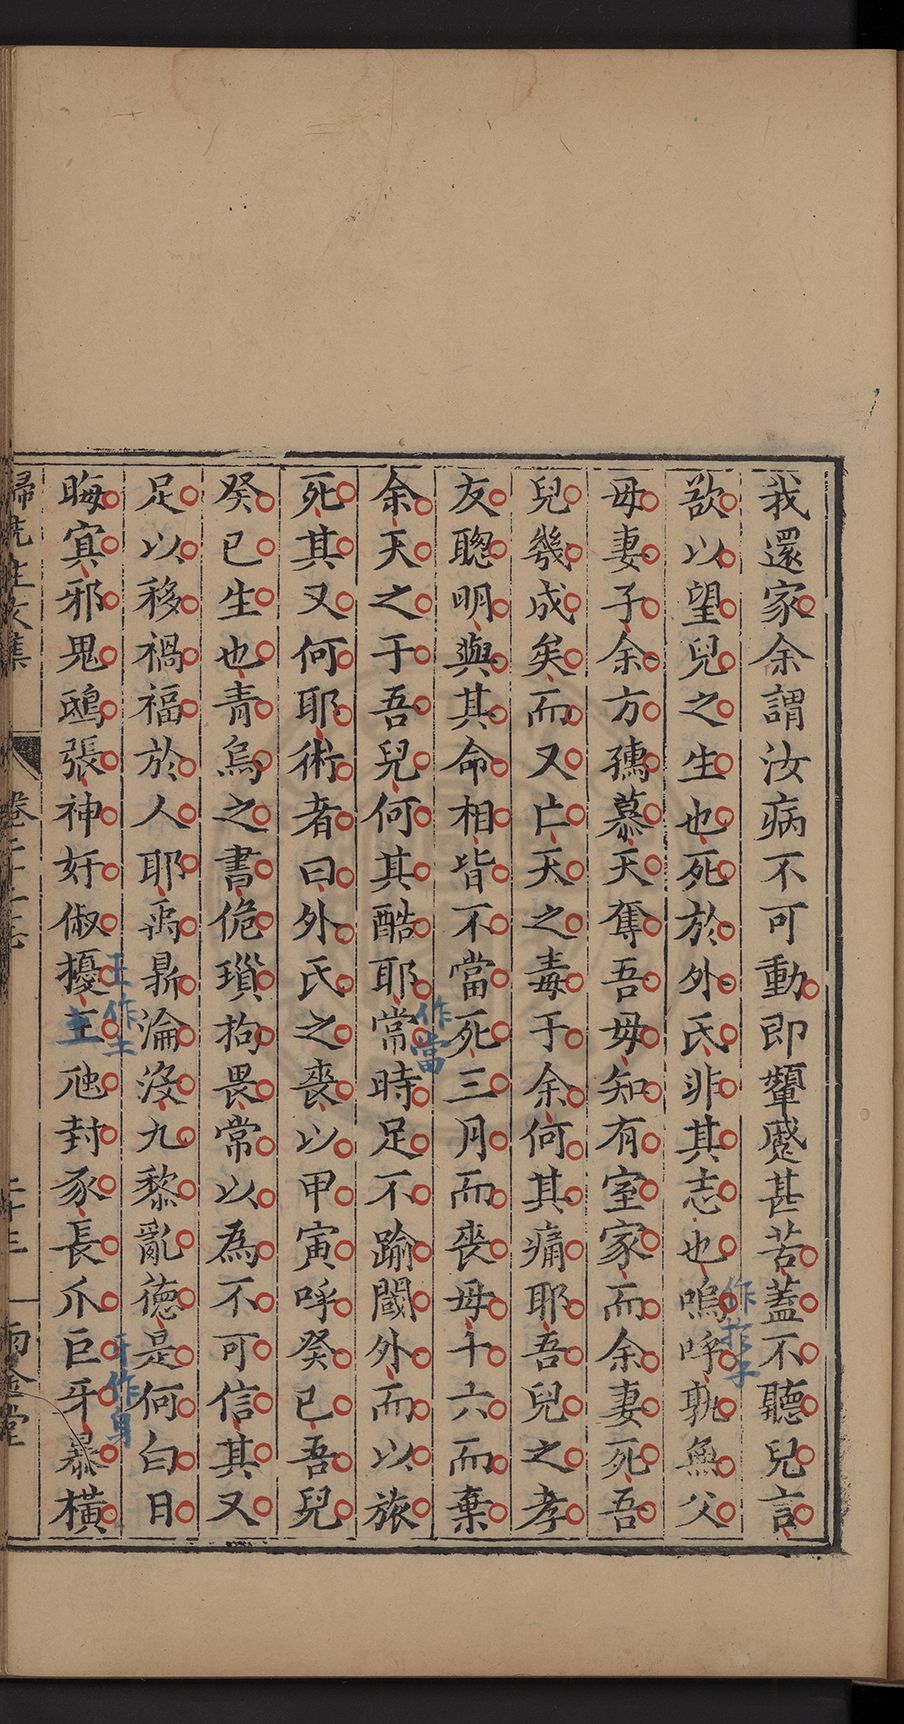 我還家余謂汝病不可動即顰蹙甚苦蓋不聽兒言
欲以望兒之生也死於外氏非其志也嗚呼孰無父
母妻子余方孺慕天奪吾母知有室家而余妻死吾
兒幾成矣而又亡天之毒于余何其痛耶吾兒之孝
友聰明與其命相皆不當死三月而喪母十六而棄
余天之于吾兒何其酷耶常時足不踰閾外而以旅
死其又何耶術者曰外氏之喪以甲寅呼癸巳吾兒
癸巳生也青烏之書佹瑣拘畏常以為不可信其又
足以移禍福於人耶禹鼎淪沒九黎亂德是何白日
晦冥邪鬼鴟張神奸俶擾王虺封豕長爪巨牙暴橫
作於乎
作當
王作土
牙作身
主
歸先生文集
卷二十
二十三
雨金堂